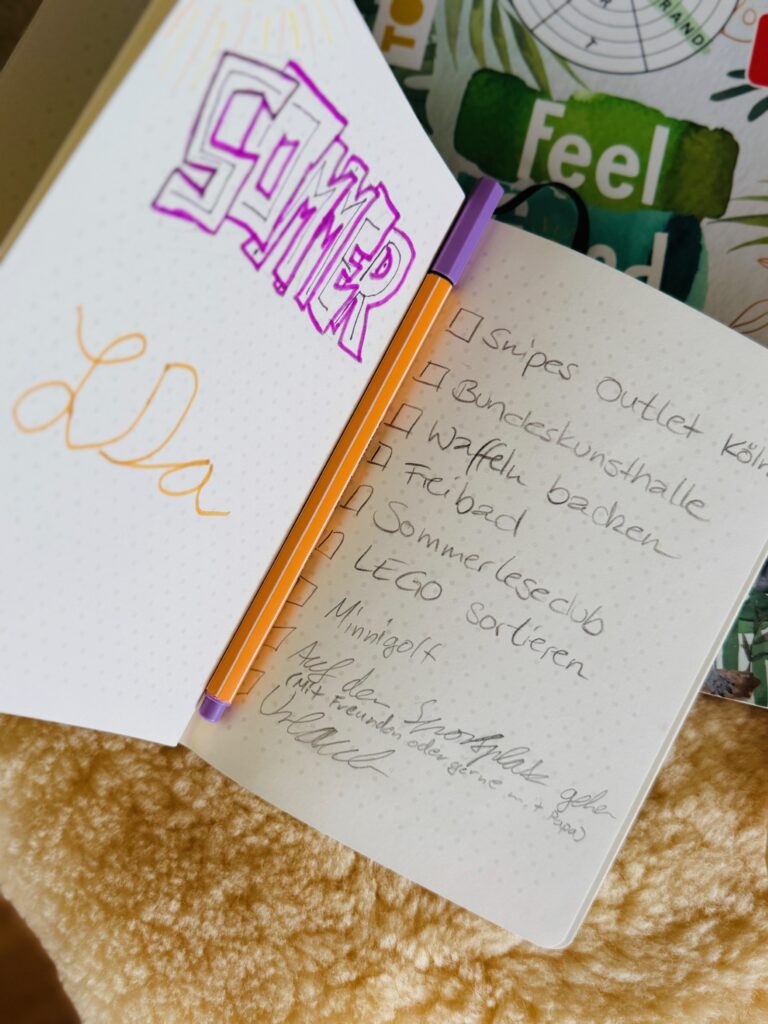 SOMMER
TO
RAND
Feel
Snipes Outlet Köln
Bundeskunsthalle
Waffeln backen
Freibad
Sommerleseclub
LEGO sortieren
Minnigolf
Auf den Sportplatz gehen
(Mit Freunden oder gerne m. + Papa)
Urlaub